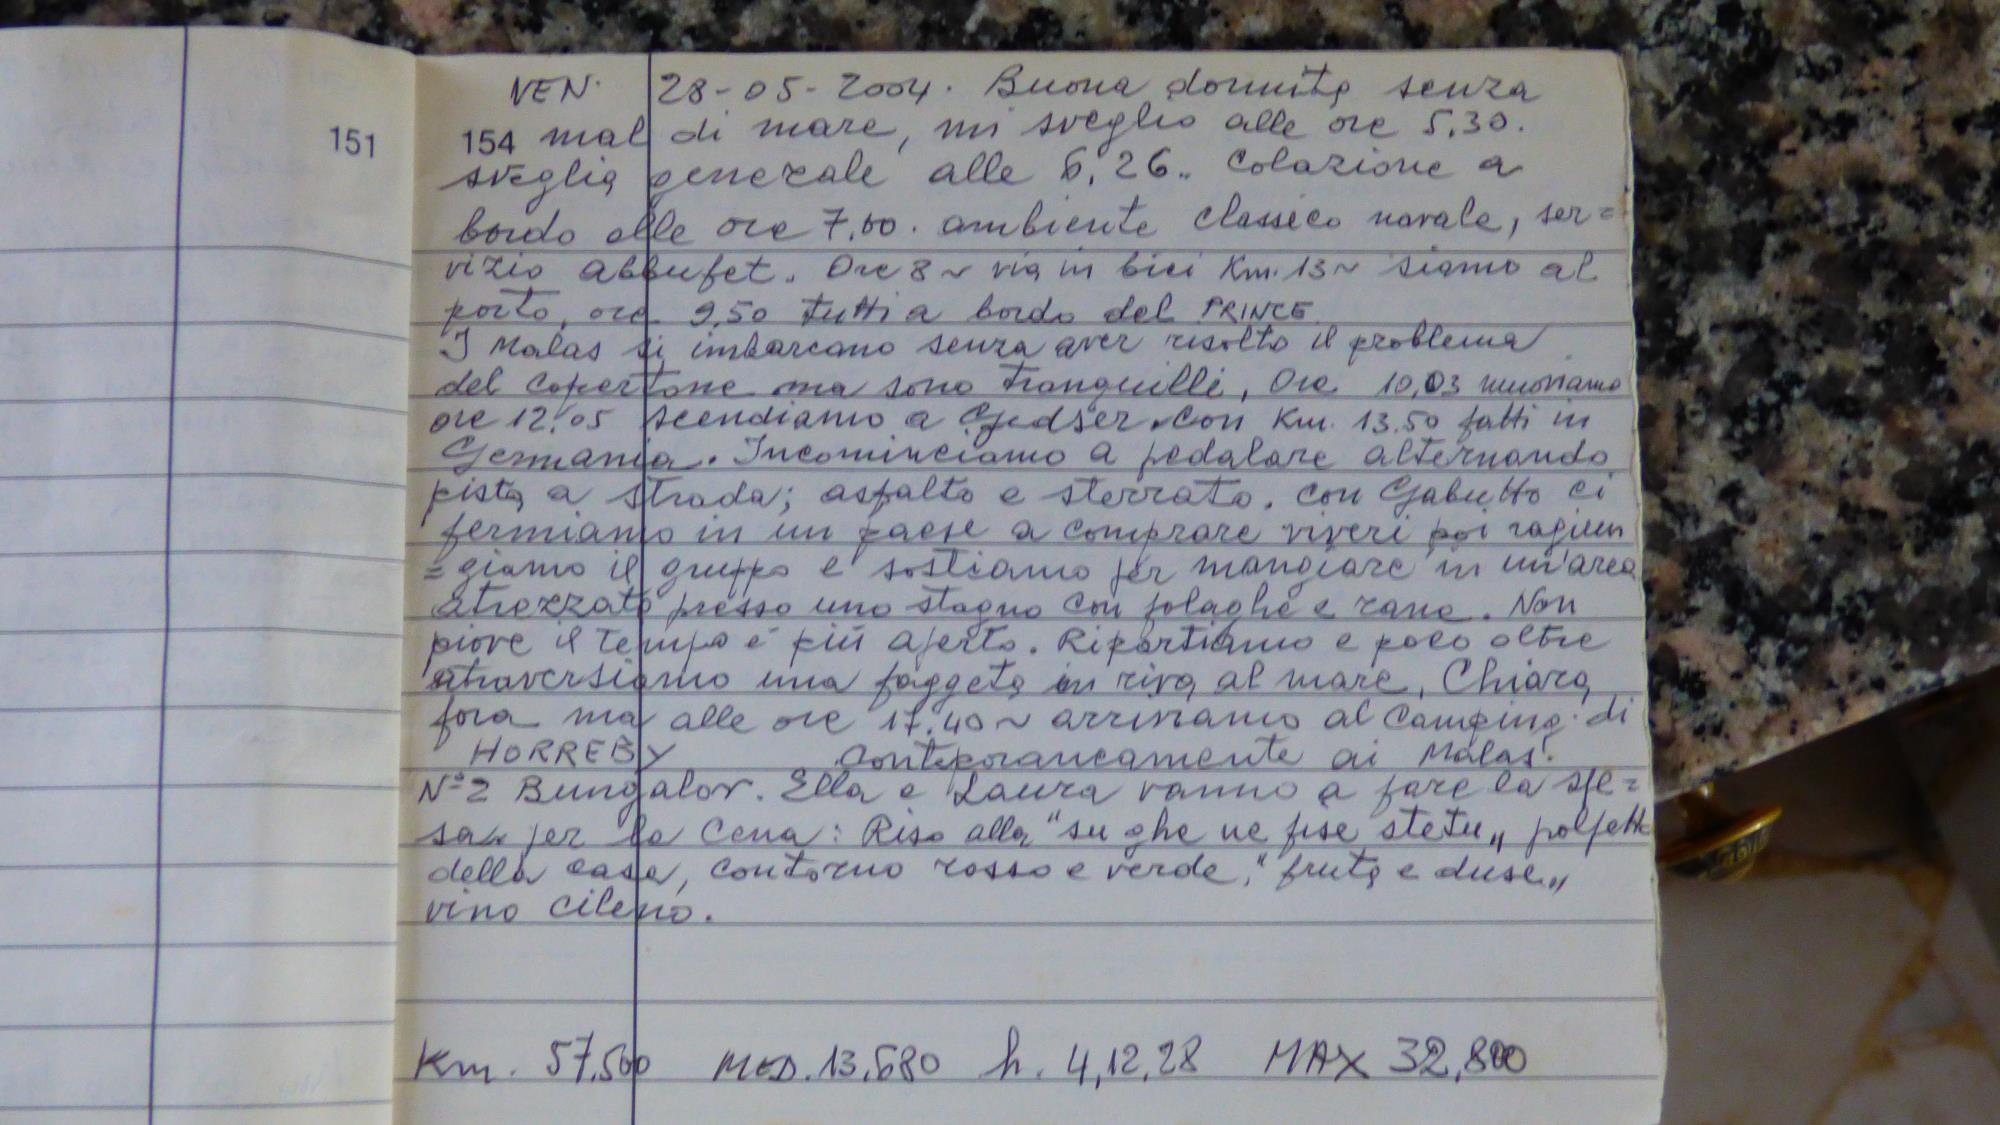 151
VEN. 28-05-2004. Buona dormita senza
154 mal di mare, mi sveglio alle ore 5,30.
sveglia generale alle 6,26.. Colazione a
bordo alle ore 7,00. ambiente classico navale, ser=
vizio abbufet. Ore 8~ via in bici Km. 13~ siamo al
porto, ore 9,50 tutti a bordo del PRINCE
I Malas si imbarcano senza aver risolto il problema
del copertone ma sono tranquilli, Ore 10,03 muoviamo
ore 12,05 scendiamo a Gedser. con Km. 13.50 fatti in
Germania. Incominciamo a pedalare alternando
pista a strada; asfalto e sterrato. con Gabutto ci
fermiamo in un paese a comprare viveri poi ragiun
=giamo il gruppo e sostiamo per mangiare in un'area
atrezzata presso uno stagno con folaghe e rane. Non
piove il tempo è più aperto. Ripartiamo e poco oltre
atraversiamo una faggeta in riva al mare, Chiara
fora ma alle ore 17.40~ arriviamo al Camping. di
HORREBY contemporaneamente ai Malas!
N° 2 Bungalov. Ella e Laura vanno a fare la spe=
sa per la Cena: Riso alla "su ghe ne fise stetu„ polpette
della casa, contorno rosso e verde, "fruta e duse„
vino cileno.
Km. 57,500 MED. 13,680 h. 4,12,28 MAX 32,800